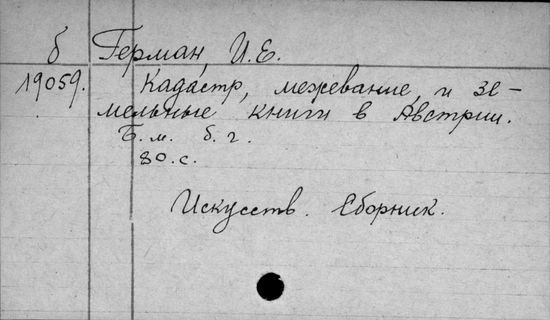 б Герман, И.Е.
19059. Кадастр, межевание и зе-
мельные книги в Австрии.
Б. м. б. г.
80. с.
Искусств. Сборник.